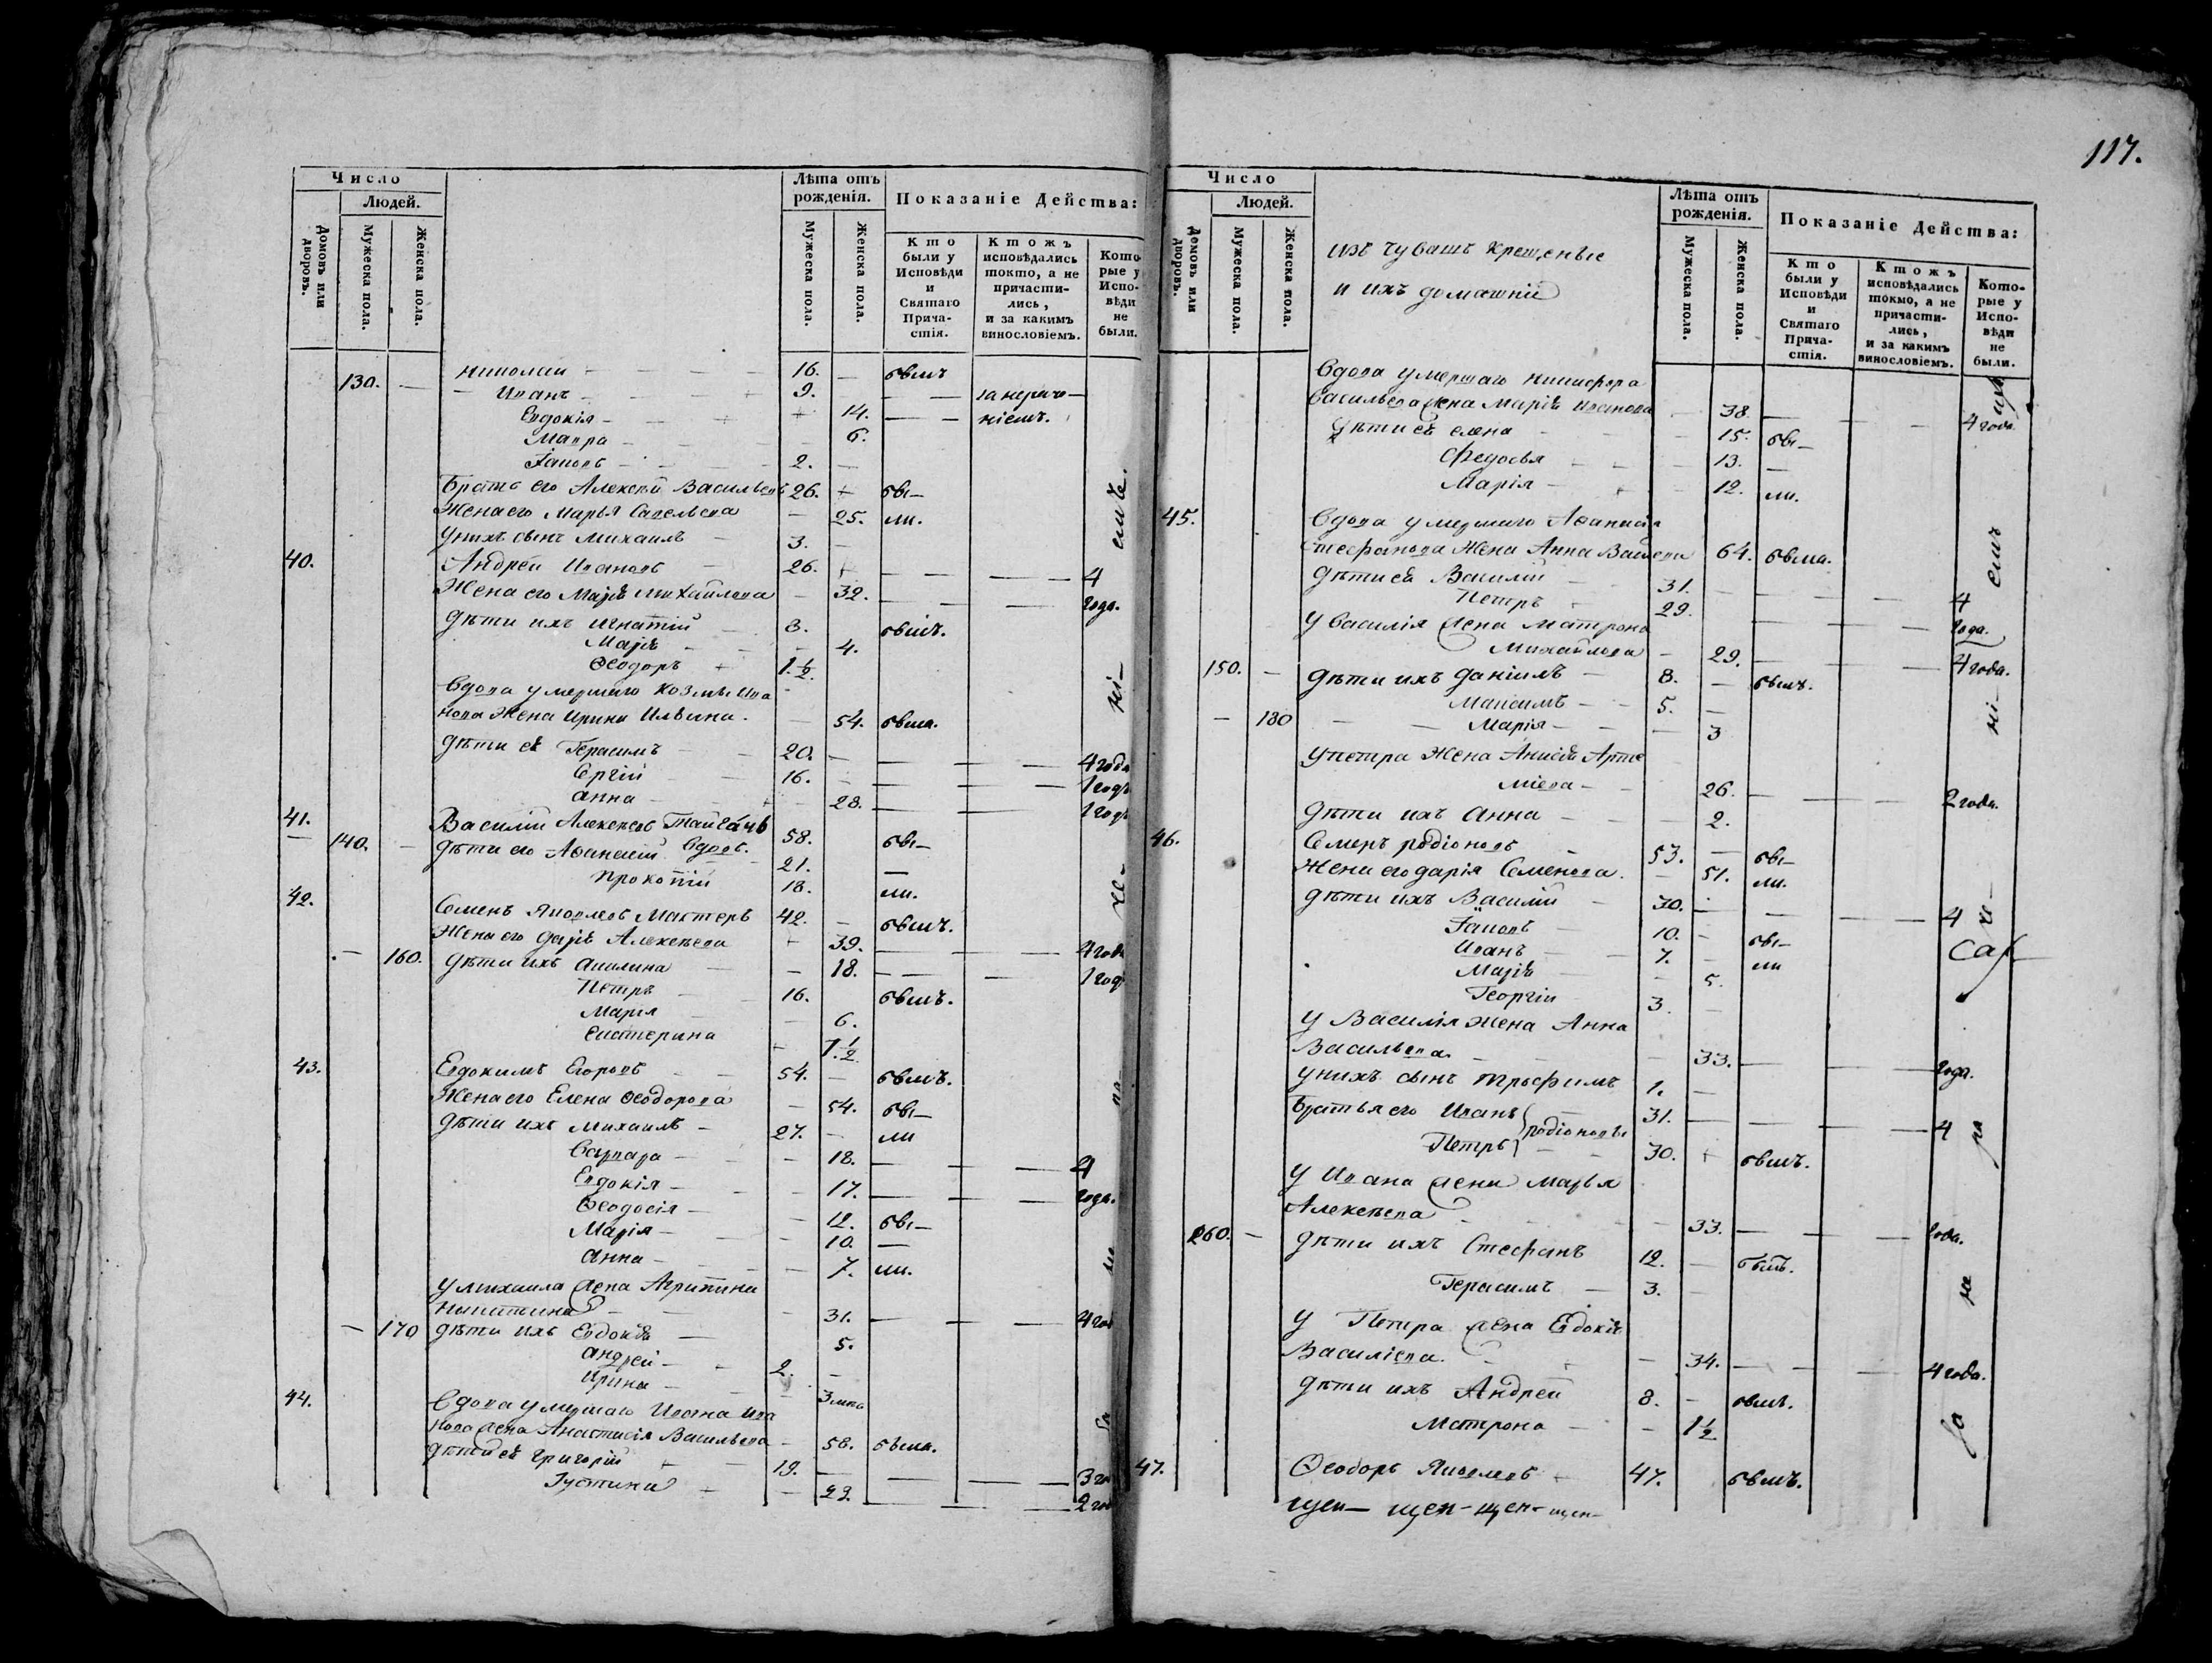 Число
Людей.
Домовъ или дворовъ.
Мужеска пола.
Женска пола.
Лѣта отъ рожденія.
Мужеска пола.
Женска пола.
Показаніе Действа:
Кто были у Исповѣди и Святаго Прича-стія.
Ктожъ исповѣдались токмо, а не причасти-лись, и за какимъ винословіемъ.
Кото-рые у Испо-вѣди не были.
Николай 16. — былъ
130. — Иванъ 9. — — за нераче-
Евдокія — 14. — — ніемъ.
Мавра — 6.
Іаковъ 2. —
Братъ его Алексѣй Васильевъ 26. бы-
Жена его Марья Савельева — 25. ли.
У нихъ сынъ Михаилъ 3. —
40. Андрей Ивановъ 26. — — — 4
Жена его Марія Михайлова — 32. — — — года.
Дѣти ихъ Игнатій 8. былъ.
Марія — 4.
Ѳеодоръ 1 1/2
Вдова умершаго Козмы Ива
нова жена Ирина Ильина. — 54. была.
Дѣти её Герасимъ 20. — — — 4 года
Сергій 16. — — — 1 годъ
Анна — 28. — — 1 годъ
41. Василій Алексѣевъ 58. бы-
— 140. — Дѣти его Аѳанасій Вдовъ. 21. —
Прокопій 18. ли.
42. Семенъ Яковлевъ Мастеръ 42. — былъ.
Жена его Дарія Алексѣева 39. — — 4 года
— 160. Дѣти ихъ Акилина — 18. — — 1 годъ
Петръ 16. былъ.
Марія — 6.
Екатерина 1 1/2
43. Евдокимъ Егоровъ 54. — былъ.
Жена его Елена Ѳеодорова — 54. бы-
Дѣти ихъ Михаилъ 27. — ли
Варвара — 18. — — 4
Евдокія — 17. — — года.
Ѳеодосія — 12. бы-
Марія — 10. —
Анна — 7. ли.
У Михаила жена Агрипина
Никитина — 31. — — 4 года
— 170 Дѣти ихъ Евдокія — 5.
Андрей 2. —
Ирина — 3
44. Вдова умершаго Ивана Ива
нова жена Анастасія Васильева — 58. была.
Дѣти её Григорій 19. — — — 3 года
Іустина — 22. — — 2 года
117.
Число
Людей.
Домовъ или дворовъ.
Мужеска пола.
Женска пола.
Изъ Чувашъ крещеные
и ихъ домашніе
Лѣта отъ рожденія.
Мужеска пола.
Женска пола.
Показаніе Действа:
Кто были у Исповѣди и Святаго Прича-стія.
Ктожъ исповѣдались токмо, а не причасти-лись, и за какимъ винословіемъ.
Кото-рые у Испо-вѣди не были.
Вдова умершаго Никифора
Васильева жена Марія Иванова 38. — — — 4 года
Дѣти её Елена — 15. бы-
Федосья — 13. —
Марія — 12. ли.
45. Вдова умершаго Аѳанасія
Стефанова жена Анна 64. была.
Дѣти её Василій 31. — — — 4
Петръ 29. — — — года.
У Василія жена Матрона
Михайлова — 29. — — 4 года.
150. — Дѣти ихъ Даніилъ 8. — былъ.
Максимъ 5. —
— 180 — Марія — 3
У Петра жена Анисія Арте
міева — 26. — — — 2 года.
Дѣти ихъ Анна — 2.
46. Семенъ Родіоновъ 53. — бы-
Жена его Дарія Семенова. — 51. ли.
Дѣти ихъ Василій 30. — — — 4
Іаковъ 10. — бы-
Иванъ 7. — ли
Марія — 5.
Георгій 3. —
У Василія жена Анна
Васильева. — 33. — — года.
У нихъ сынъ Трофимъ 1. —
Братья его Иванъ 31. — — — 4
Родіоновы
Петръ 30. былъ.
У Ивана жена Марья
Алексѣева — 33. — — года.
260. — Дѣти ихъ Стефанъ 12. — былъ.
Герасимъ 3. —
У Петра жена Евдокія
Василіева. — 34. — — 4 года.
Дѣти ихъ Андрей 8. — былъ.
Матрона — 1 1/2
47. Ѳеодоръ Яковлевъ 47. былъ.